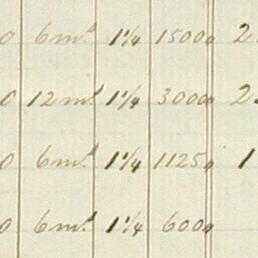 0 6 m.d 1 1/4 15000 2
0 12 m.d 1 1/4 30000 2
0 6 m.d 1 1/4 11250 1
0 6 m.d 1 1/4 6000